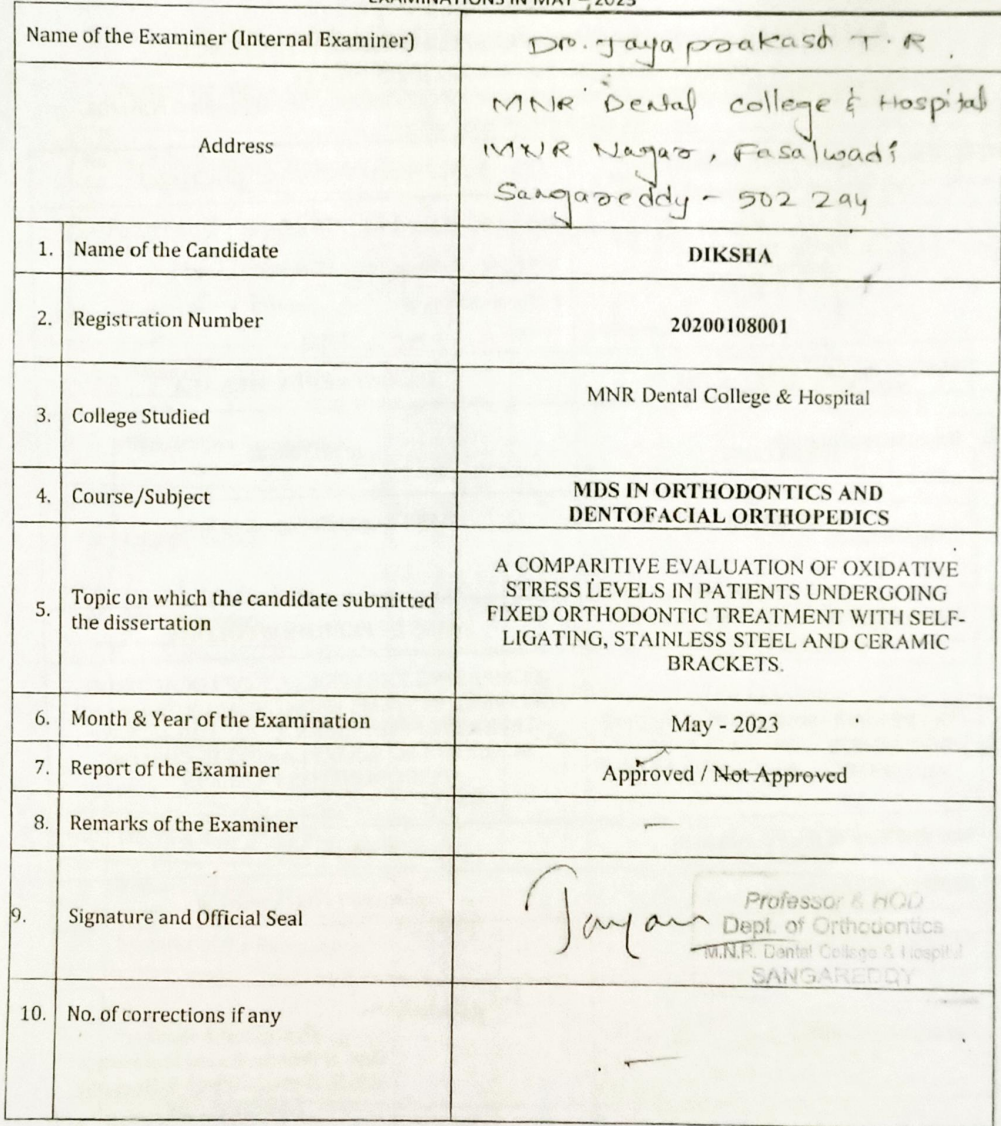 EXAMINATIONS IN MAY - 2023
Name of the Examiner (Internal Examiner)
Dr. Jayaprakash T.R
Address
MNR Dental college & Hospital
MNR Nagar, Fasalwadi
Sangareddy - 502 294
1. Name of the Candidate
DIKSHA
2. Registration Number
20200108001
3. College Studied
MNR Dental College & Hospital
4. Course/Subject
MDS IN ORTHODONTICS AND
DENTOFACIAL ORTHOPEDICS
5. Topic on which the candidate submitted
the dissertation
A COMPARITIVE EVALUATION OF OXIDATIVE
STRESS LEVELS IN PATIENTS UNDERGOING
FIXED ORTHODONTIC TREATMENT WITH SELF-
LIGATING, STAINLESS STEEL AND CERAMIC
BRACKETS.
6. Month & Year of the Examination
May - 2023
7. Report of the Examiner
Approved / Not Approved
8. Remarks of the Examiner
—
9. Signature and Official Seal
Professor & HOD
Dept. of Orthodontics
M.N.R. Dental College & Hospital
SANGAREDDY
10. No. of corrections if any
—